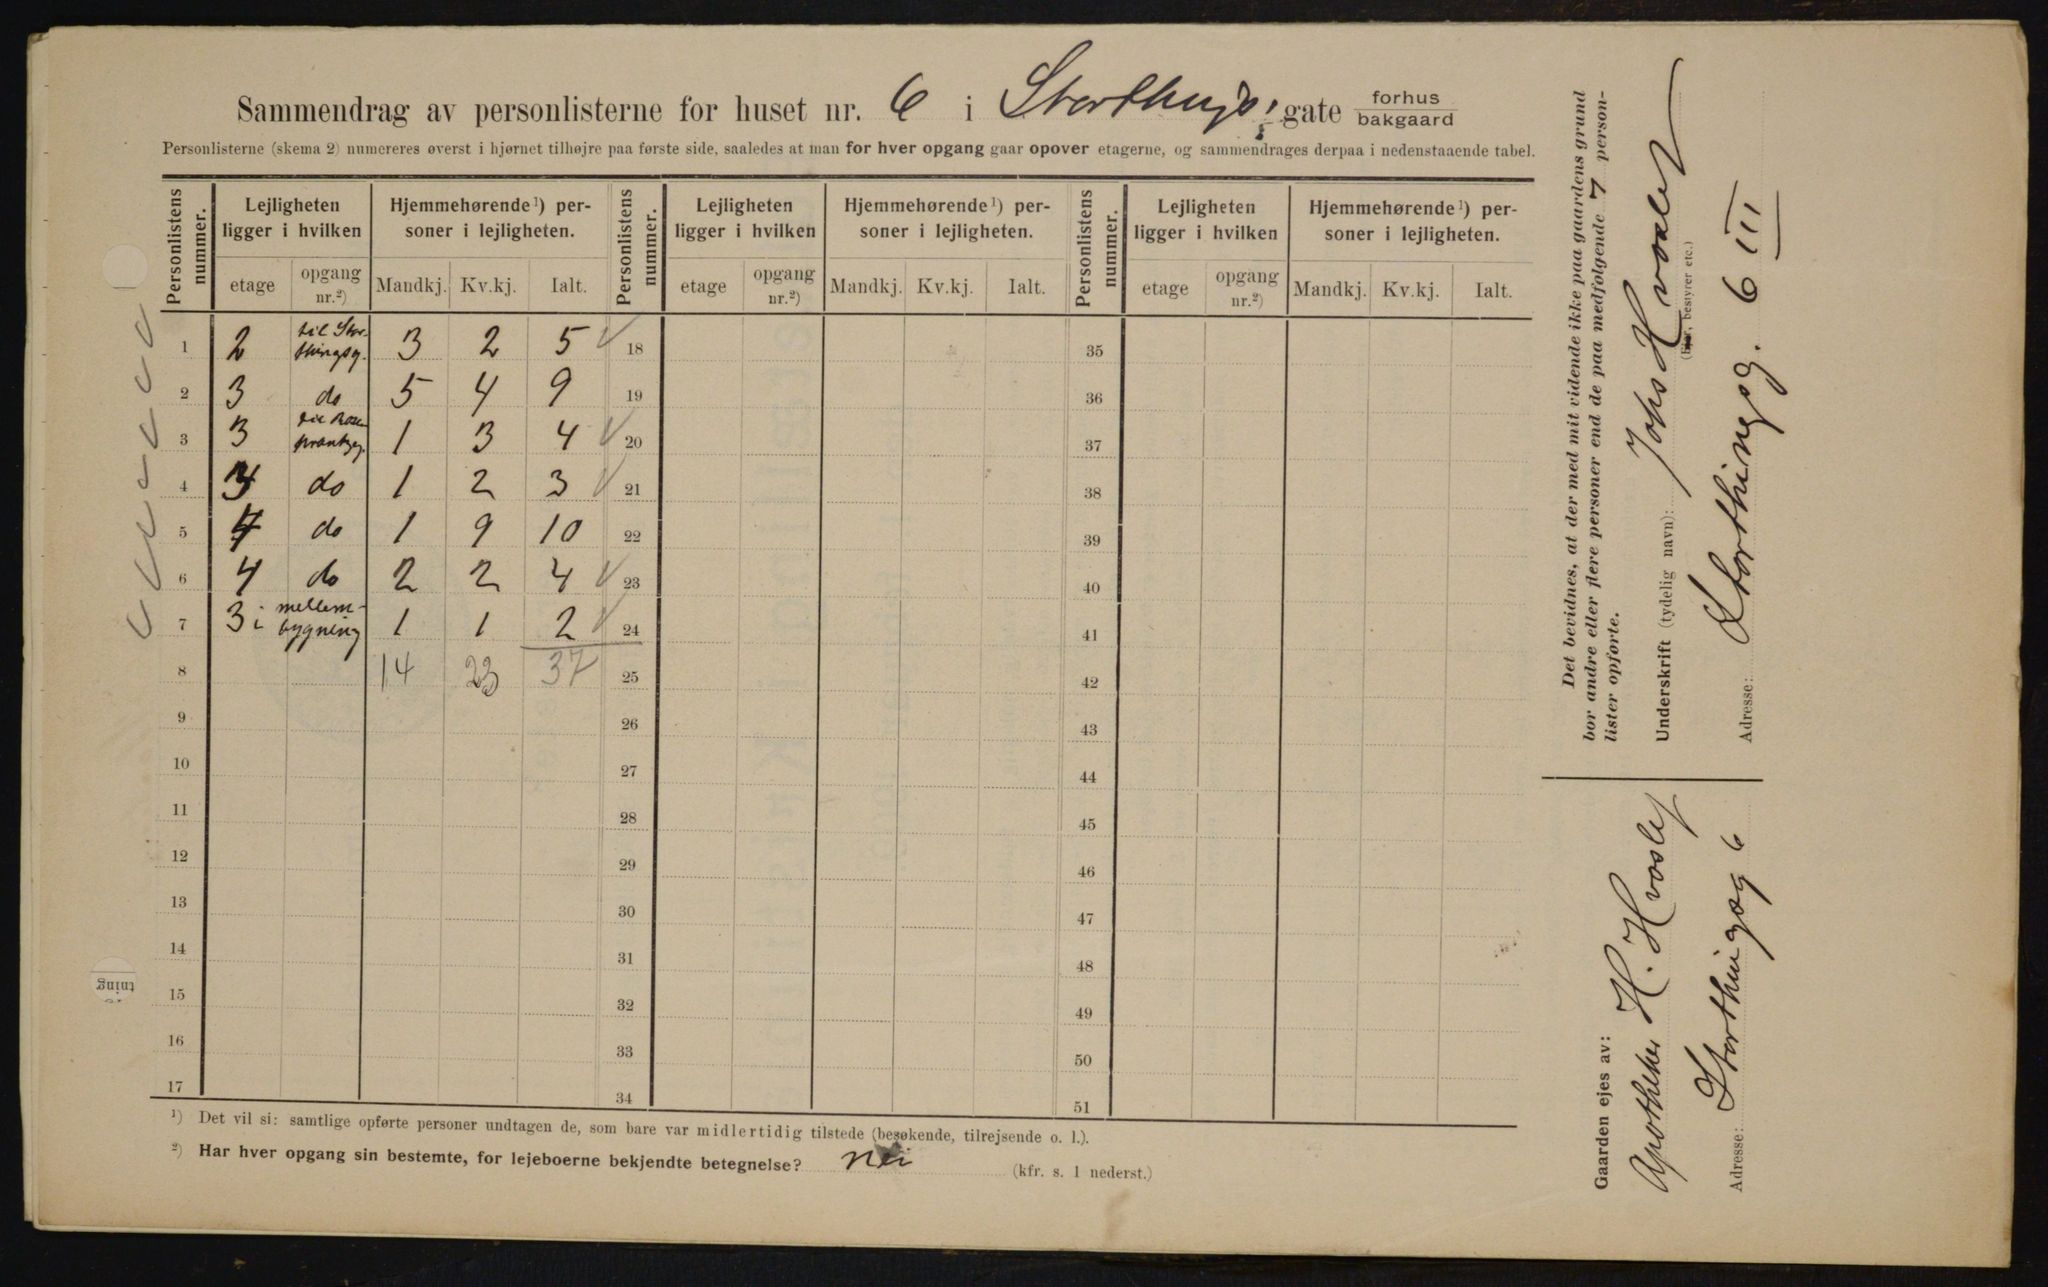 Sammendrag av personlisterne for huset nr. 6 i Storthings gate forhus
bakgaard
Personlisterne (skema 2) numereres øverst i hjørnet tilhøjre paa første side, saaledes at man for hver opgang gaar opover etagerne, og sammendrages derpaa i nedenstaaende tabel.
Personlistens nummer. Lejligheten ligger i hvilken Hjemmehørende ¹) personer i lejligheten. Personlistens nummer. Lejligheten ligger i hvilken Hjemmehørende ¹) personer i lejligheten. Personlistens nummer. Lejligheten ligger i hvilken Hjemmehørende ¹) personer i lejligheten.
etage opgang nr.²) Mandkj. Kv.kj. Ialt. etage opgang nr.²) Mandkj. Kv.kj. Ialt. etage opgang nr.²) Mandkj. Kv.kj. Ialt.
1 2 til Stor-thingsg. 3 2 5 18 35
2 3 do 5 4 9 19 36
3 3 til Rosenkrantzg. 1 3 4 20 37
4 do 1 2 3 21 38
5 4 do 1 9 10 22 39
6 4 do 2 2 4 23 40
7 3 i mellem-bygning 1 1 2 24 41
8 14 23 37 25 42
9 26 43
10 27 44
11 28 45
12 29 46
13 30 47
14 31 48
15 32 49
16 33 50
17 34 51
¹) Det vil si: samtlige opførte personer undtagen de, som bare var midlertidig tilstede (besøkende, tilrejsende o. l.).
²) Har hver opgang sin bestemte, for lejeboerne bekjendte betegnelse? nei (kfr. s. 1 nederst.)
Det bevidnes, at der med mit vidende ikke paa gaardens grund
bor andre eller flere personer end de paa medfølgende 7 person-
lister opførte.
Underskrift (tydelig navn): Johs Hvoslef
(Ejer, bestyrer etc.)
Adresse: Storthingsg. 6 III
Gaarden ejes av:
Apotheker H. Hvoslef
Adresse: Storthingsg 6
tning